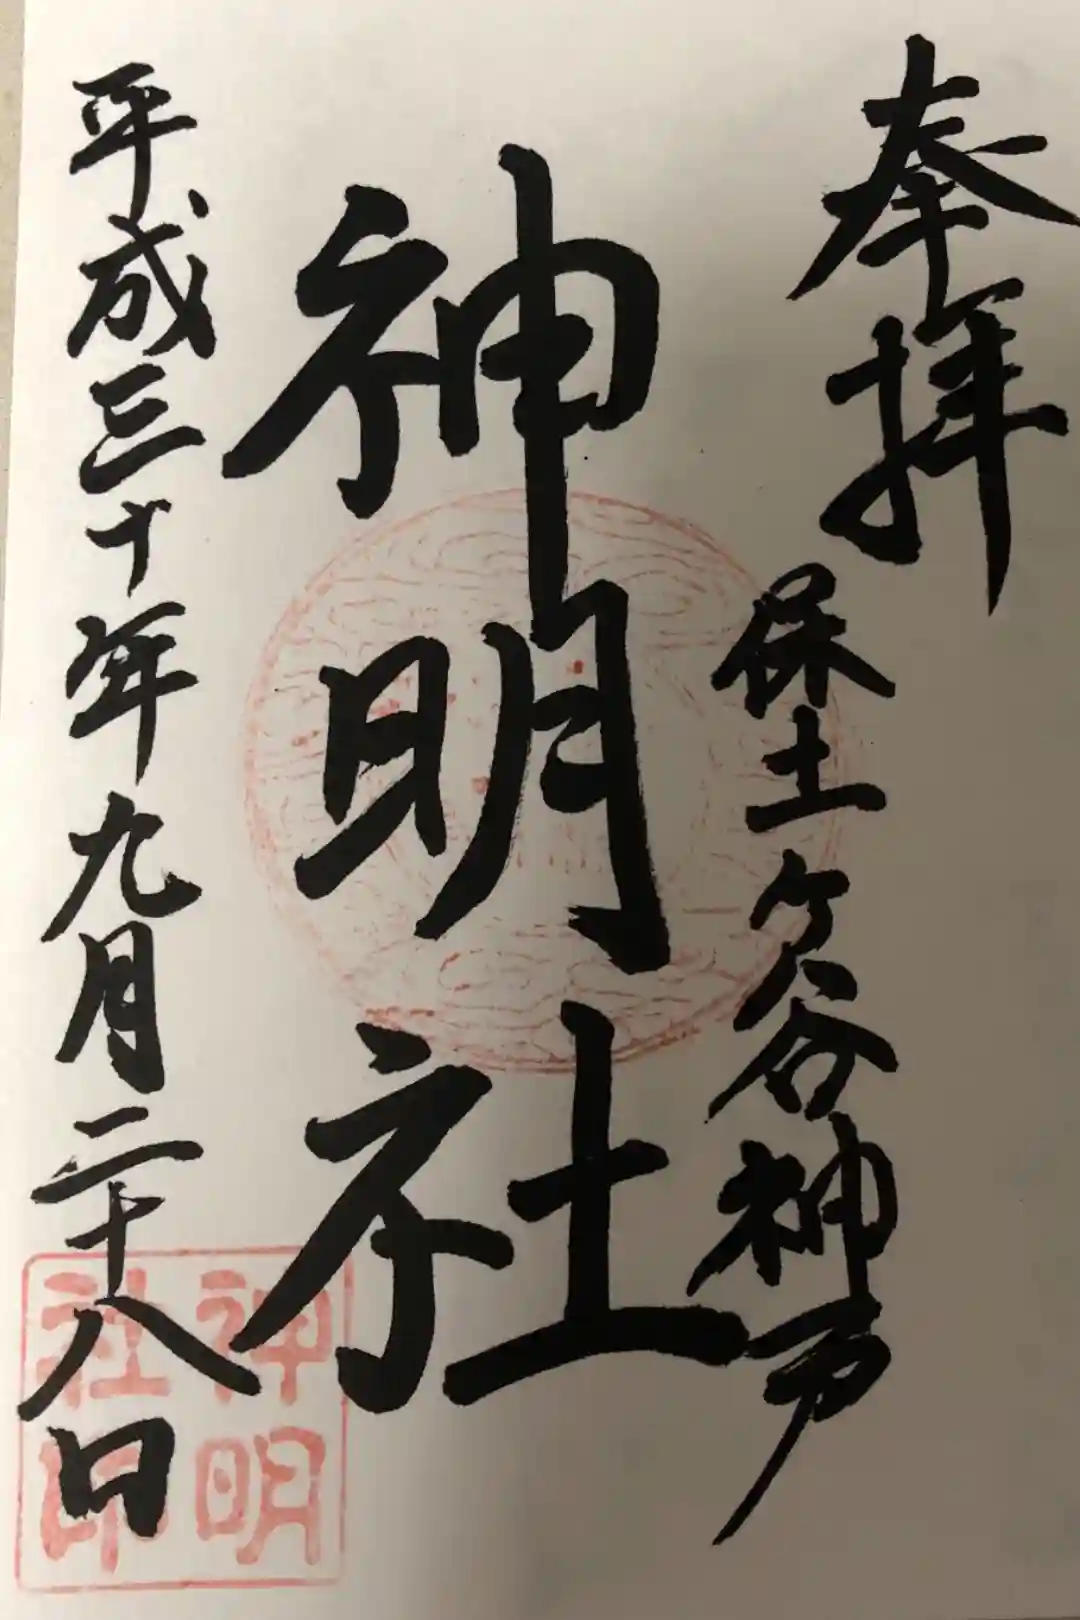 奉拝
保土ヶ谷神戸
神明社
平成三十年九月二十八日
神明
社印